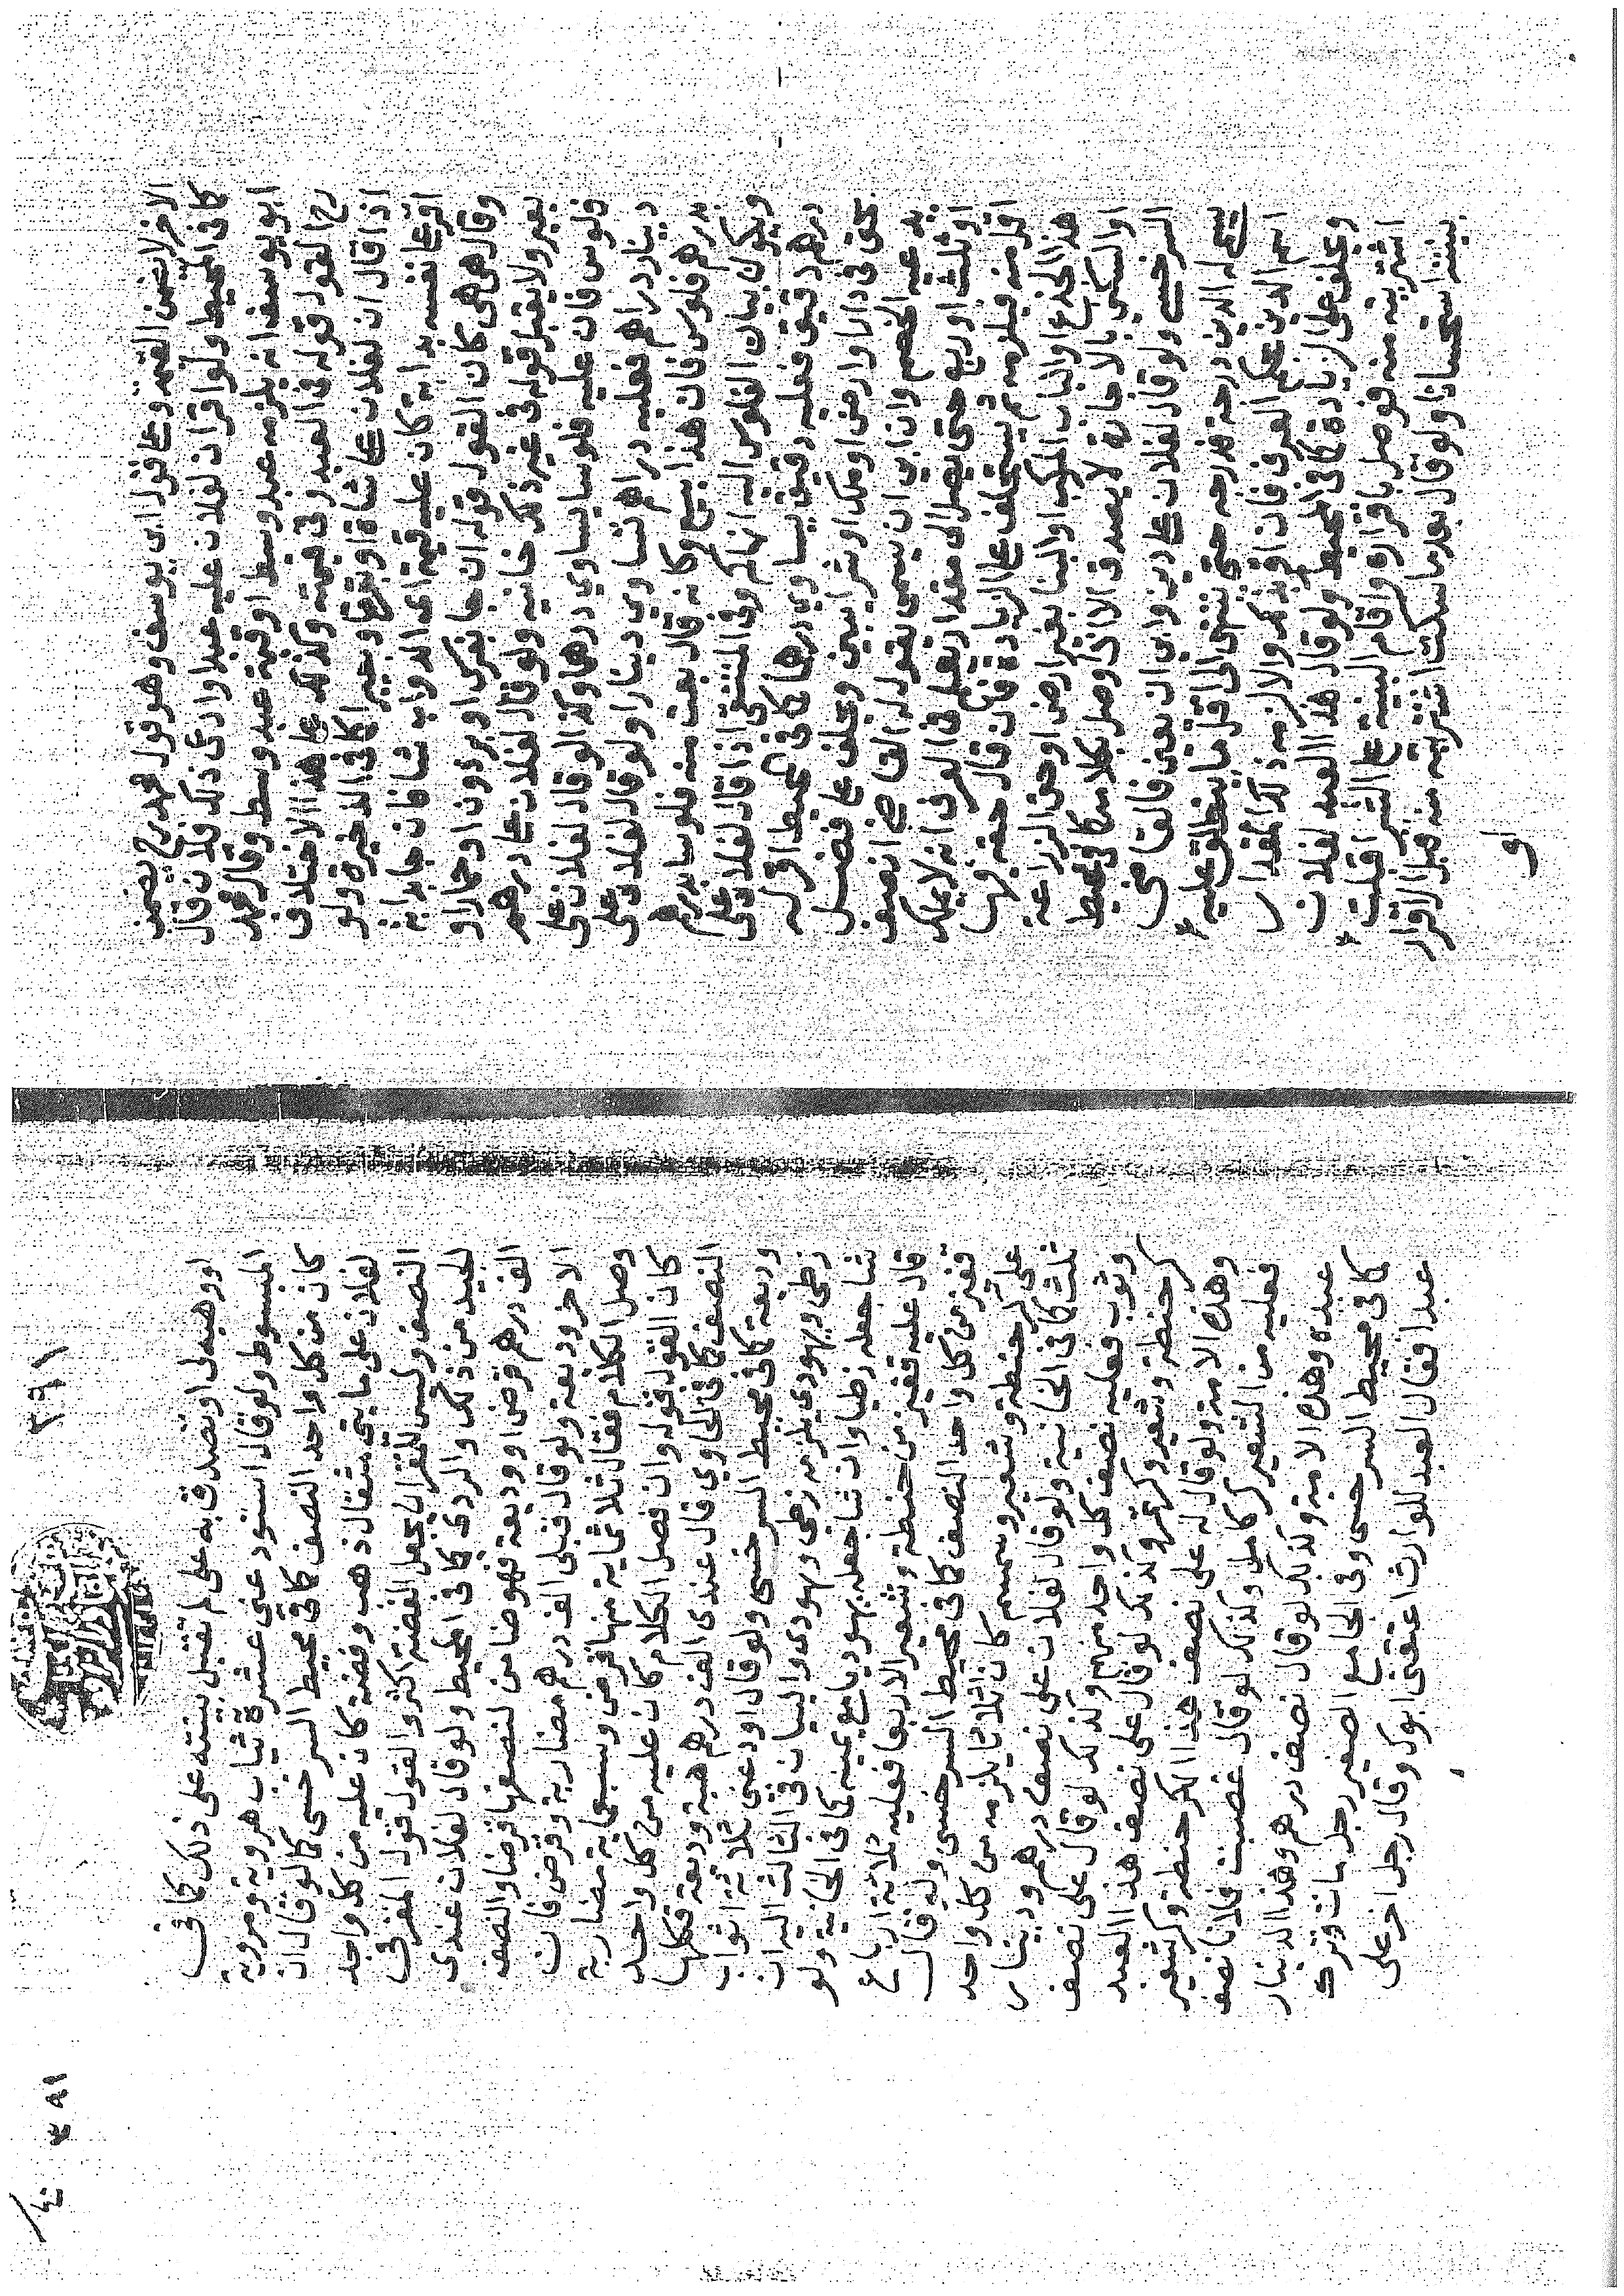 الاخر لا يضمن القيمة وعلى قول ابي يوسف وهو قول محمد رح يضمن
كما في المحيط ولو اقر ان لفلان عليه عبدا وادعى ذلك فلان قال
ابو يوسف انه يلزمه عبد وسط او قيمة عبد وسط وقال محمد
رح القول قوله في العبد وفي قيمته وكذلك على هذا الاختلاف
اذا قال ان لفلان على شاة او بقرة او بعير كما في الذخيرة ولو
اقر على نفسه بدابة كان عليه قيمة اى الدواب شا فان جا بدابة
وقال هي هي كان القول قوله ان جا بفرس او برذون او حمار او
بعير ولا يقبل قوله في غير ذلك خانيه ولو قال لفلان على درهم
فلوس فان عليه فلوسا يساوي درهما وكذا لو قال لفلان على
دينار دراهم فعليه دراهم تساوي دينارا ولو قال لفلان على
بدرهم فلوس فان هذا بيع وكانه قال بعت منه فلوسا بدرهم
ويكون بيان الفلوس اليه انها كم وفي المنتقى اذا قال لفلان على
درهم دقيق فعليه دقيق يساوي درهما كما في المحيط اقر له
بحق في دار او ارض او ملك او شرا يبين ويحلف على فضل
يدعيه الخصم وان ابى ان يسمى يقول له القاضي انصف
او ثلث او ربع حتى يصل الى مقدار يعلم في العرف انه لا يملك
اقل منه فيلزمه ثم يستحلف على الزيادة فان قال حقه فيها
هذا الجذع او الباب المركب او البنا بغير ارض او حق الزراعة
او السكنى بالاجارة لا يصدق الا اذا وصل بكلامه كما في محيط
السرخسي ولو قال لفلان على دين وابى ان يعين فالقاضي
يسمي له الدين درجة فدرجه حتى ينتهي الى اقل ما ينطلق عليه
اسم الدين بحكم العرف فان اقر بذلك والا لزمه ذلك المقدار
ويحلف على الزيادة كما في المحيط ولو قال هذا العبد لفلان
اشتريته منه فوصل باقراره واقام البينة على الشرا قبلت
بينته استحسانا ولو قال بعد ما سكت اشتريته منه قبل الاقرار
او
او وهبه لى او تصدق به على لم تقبل بينته على ذلك كما في
المبسوط ولو قال استودعني عشرة ثياب هروية ومروية
كان من كل واحد النصف كما في محيط السرخسى كما لو قال ان
لفلان على مايتى مثقال ذهب وفضة كان عليه من كل واحد
النصف وليس للمقر ان يجعل الفضة اكثر والقول قول المقر في
الجيد من ذلك والردي كما في المحيط ولو قال لفلان عندى
الف درهم قرض ووديعة فهو ضامن لنصفها قرضا والنصف
الاخر وديعة ولو قال قبلى الف درهم مضاربة وقرض فان
وصل الكلام فقال ثلاثماية منها قرض وسبعماية مضاربة
كان القول قوله وان فصل الكلام كان عليه من كل واحد
النصف كما في الحاوي قال عندى الف درهم هبة وديعة فكلها
وديعة كما في محيط السرخسى ولو قال اودعنى ثلاثة اثواب
زطى ويهودى يلزمه زطى ويهودى والبيان في الثالث اليه ان
شا جعله زطيا وان شا جعله يهوديا مع يمينه كما في الخانية ولو
قال عليه قفيز من حنطة وشعير الا ربعا فعليه ثلاثة ارباع
قفيز من كل واحد النصف كما في محيط السرخسى ولو قال
على كر حنطة وشعير وسمسم كان اثلاثا يلزمه من كل واحد
ثلث كما في الخانية ولو قال لفلان على نصف درهم ودينار
وثوب فعليه نصف كل واحد منهم وكذلك لو قال على نصف
كر حنطة وشعير وكر تمر وكذلك لو قال على نصف هذا العبد
وهذه الامة ولو قال له على نصف هذا الكر حنطة وكر شعير
فعليه من الشعير كر كامل وكذلك لو قال غصبت فلانا نصف
عبده وهذه الامة وكذلك لو قال نصف درهم وهذا الدينار
كما في محيط السرخسى وفي الجامع الصغير رجل مات وترك
عبدا فقال العبد للوارث اعتقنى ابوك وقال رجل اخر على